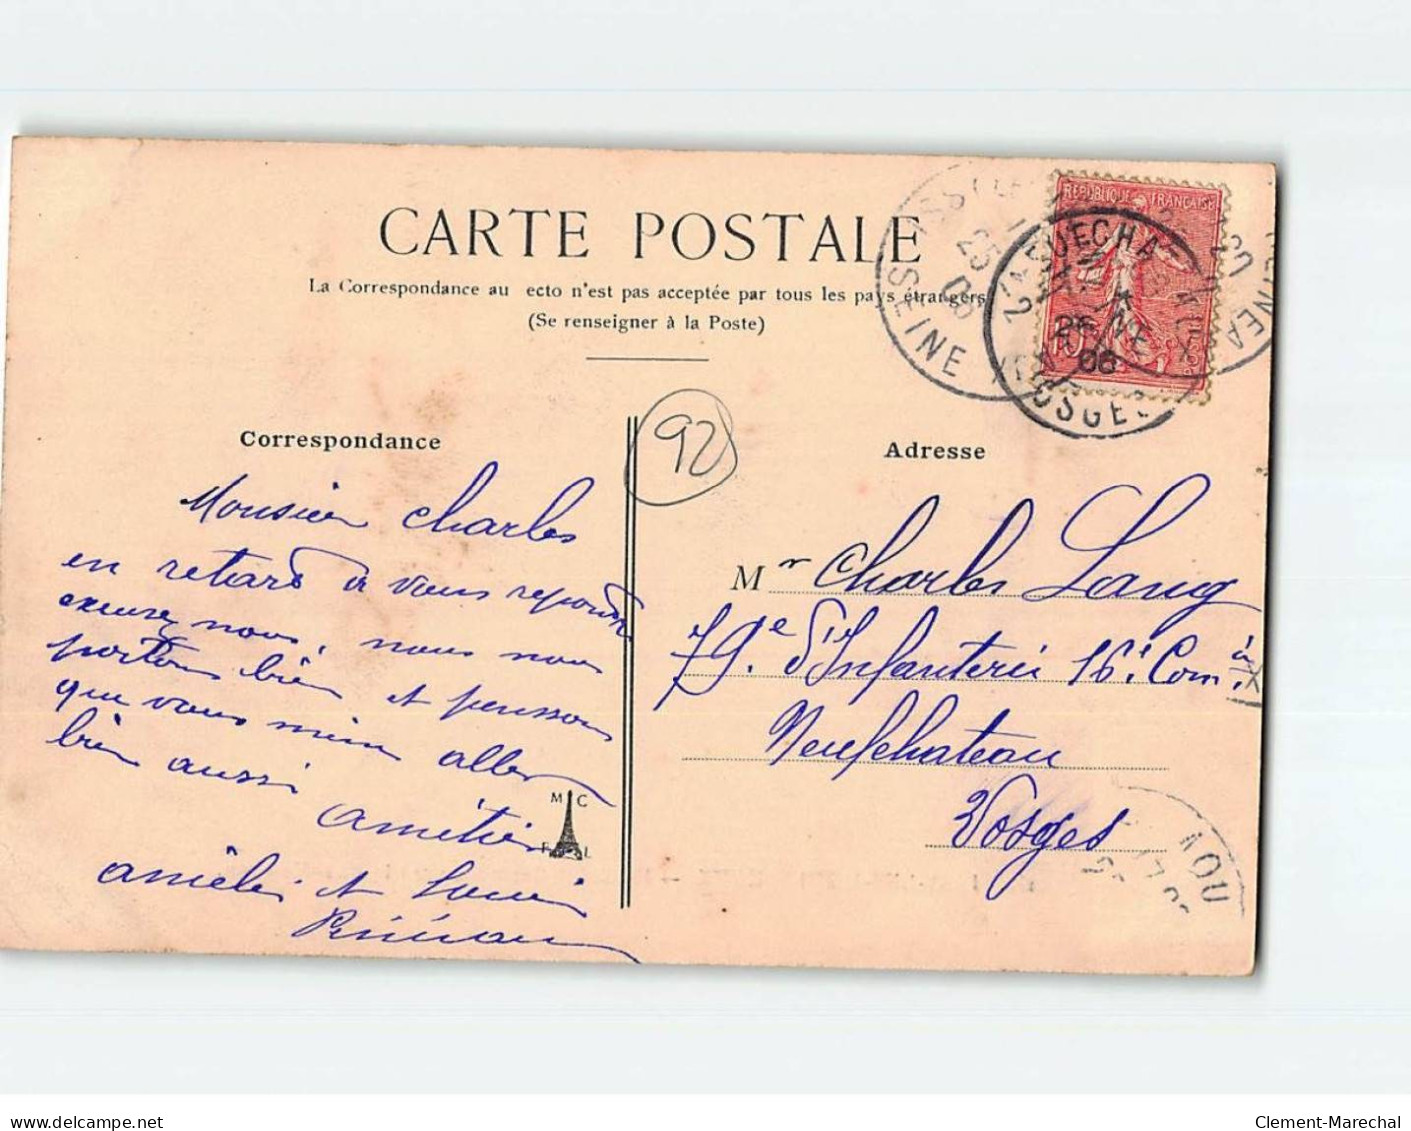 CARTE POSTALE
La Correspondance au ecto n'est pas acceptée par tous les pays étrangers
(Se renseigner à la Poste)
REPUBLIQUE FRANÇAISE
10
25
08
SEINE
26
08
VOSGES
92
Correspondance
Adresse
Monsieur Charles
en retard à vous repondre
excusez nous, nous nous
portons bien et pensson
que vous meme aller
bien aussi
amitié
M C
F L
amelie et Louis
Mr Charles Lang
79e d'Infanterie 16e Com
Neufchateau
Vosges
delcampe.net
Clement-Marechal